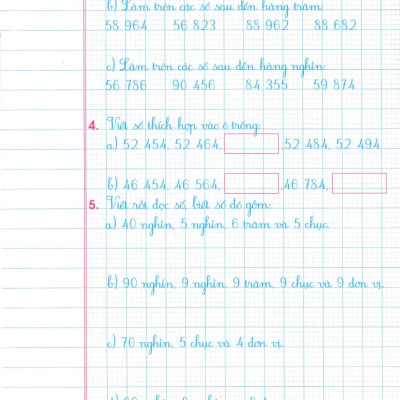 b) Làm tròn các số sau đến hàng trăm:
58 964 56 823 88 962 88 682
c) Làm tròn các số sau đến hàng nghìn:
56 786 90 456 84 355 59 874
4. Viết số thích hợp vào ô trống:
a) 52 454, 52 464, ,52 484, 52 494
b) 46 454, 46 564, ,46 784,
5. Viết rồi đọc số, biết số đó gồm:
a) 40 nghìn, 5 nghìn, 6 trăm và 5 chục.
b) 90 nghìn, 9 nghìn, 9 trăm, 9 chục và 9 đơn vị.
c) 70 nghìn, 5 chục và 4 đơn vị.